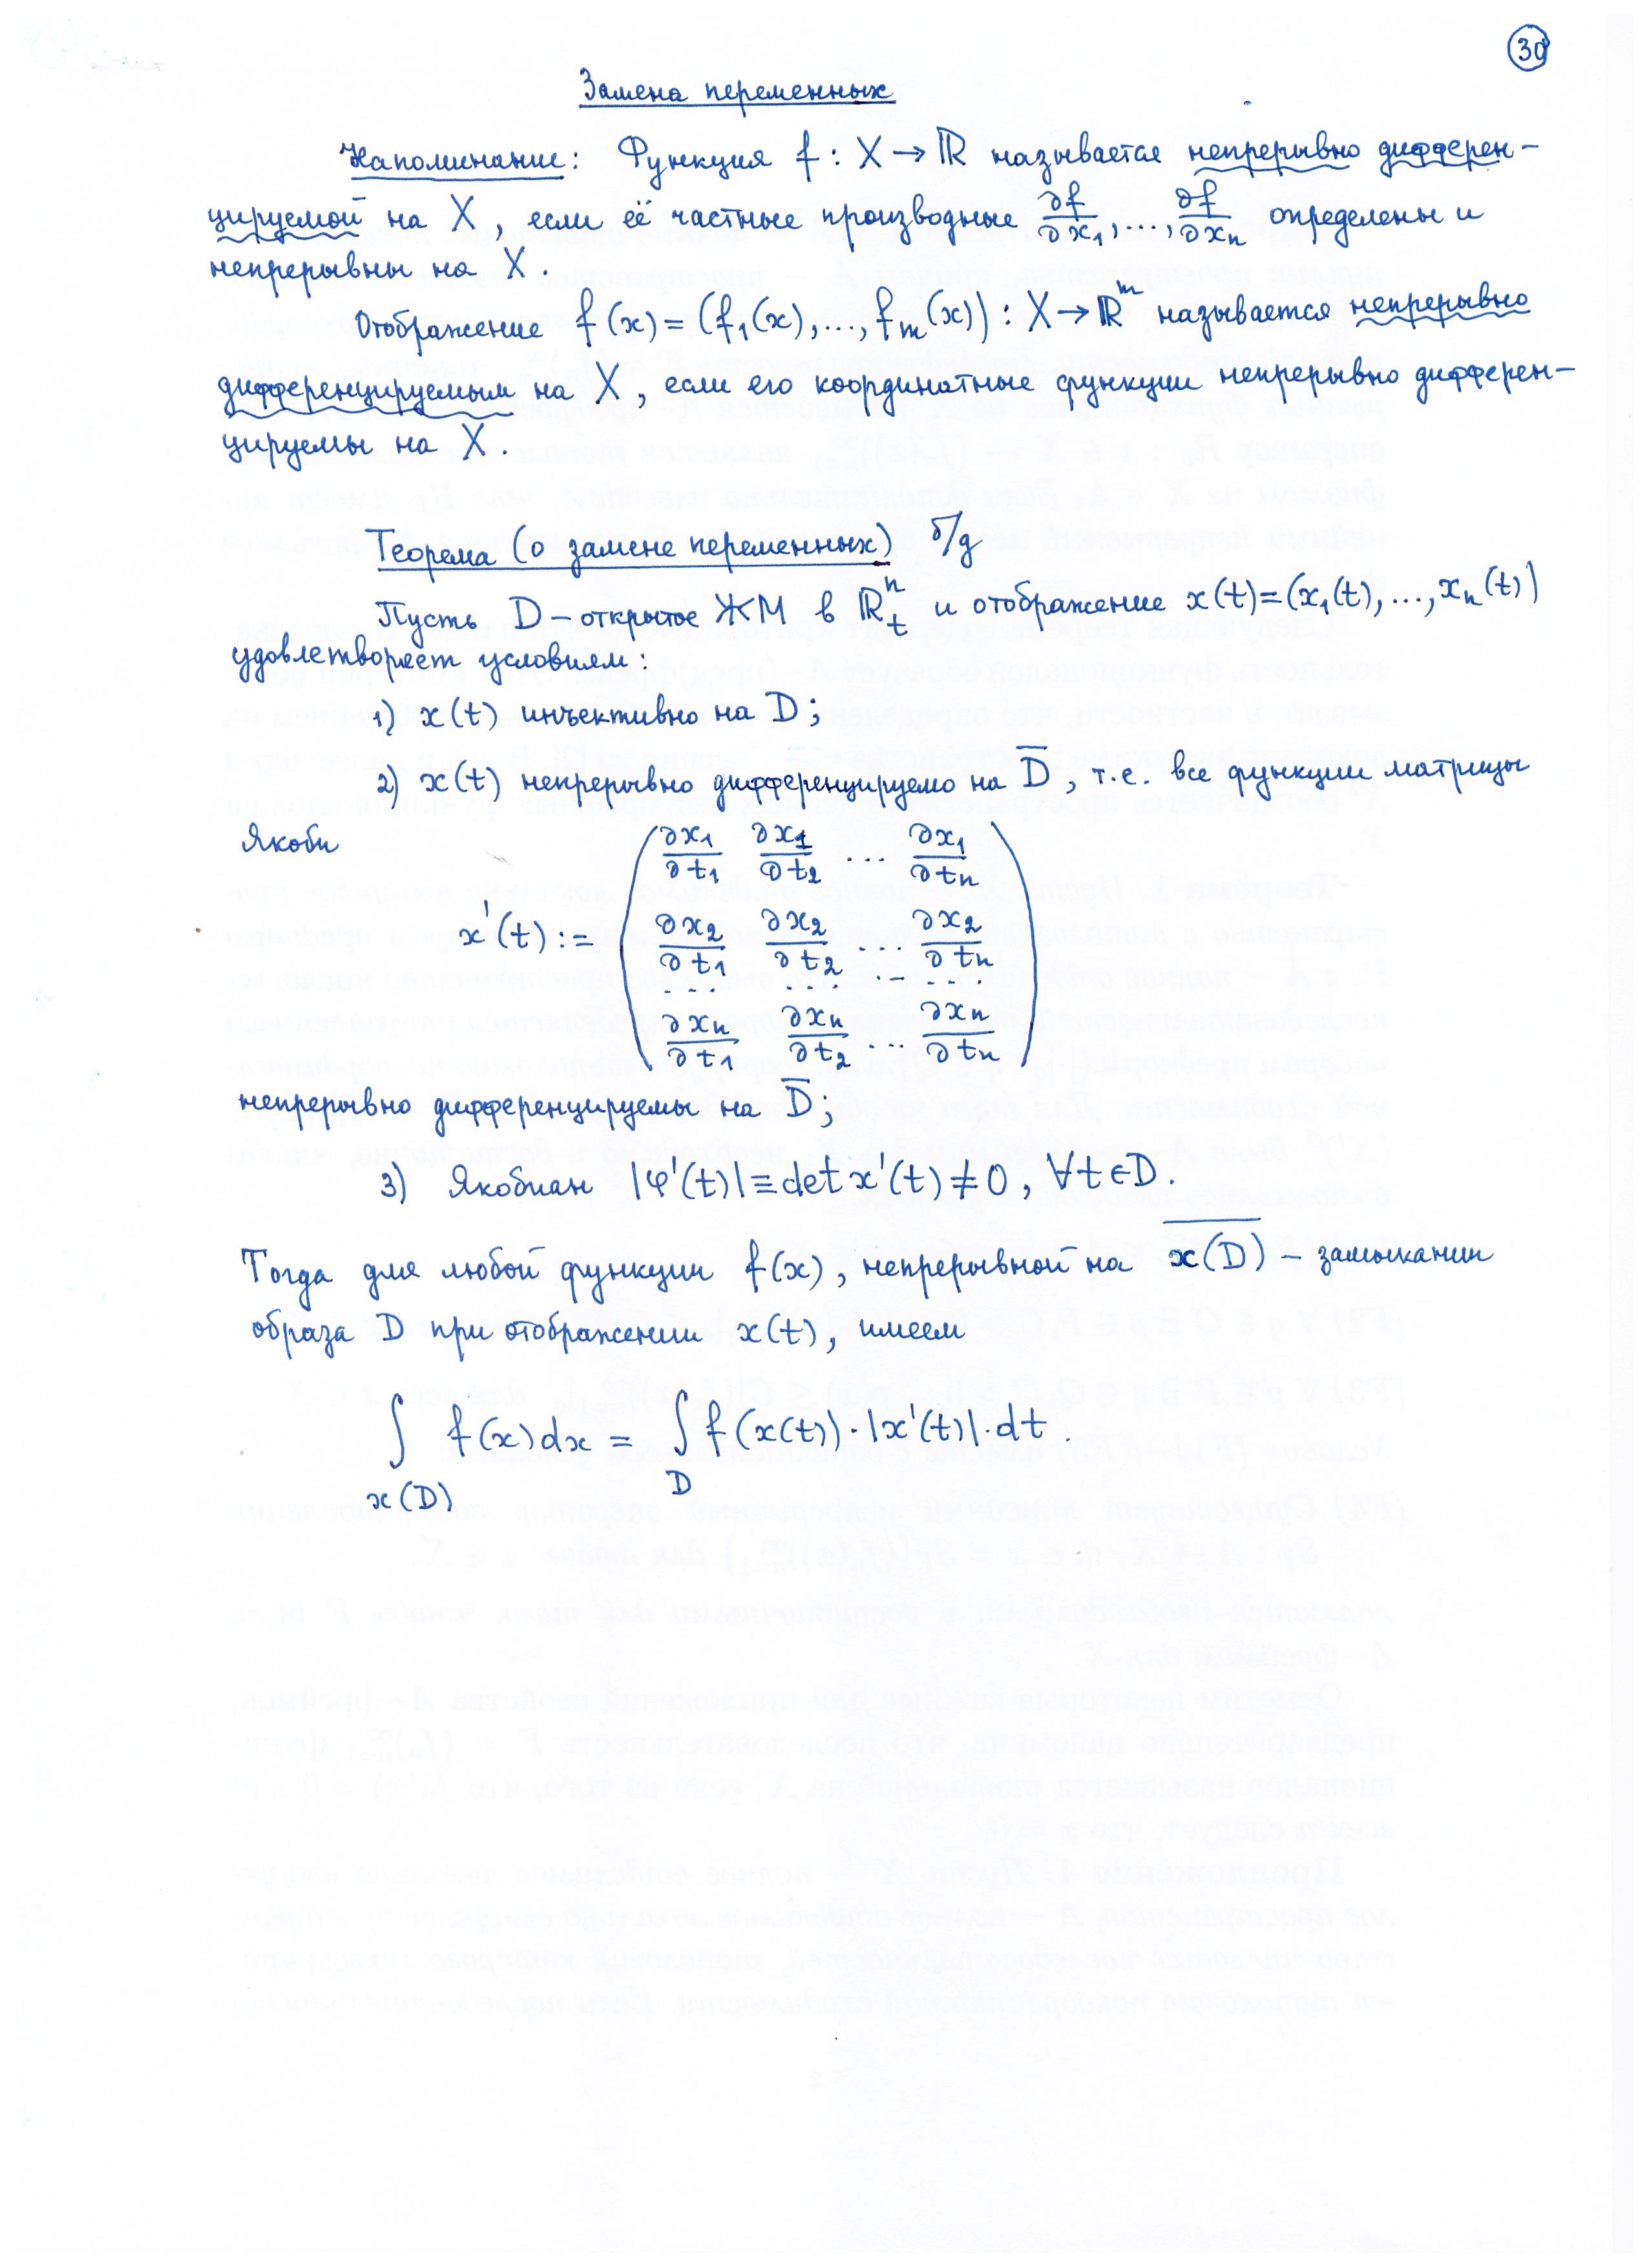 30
Замена переменных
Напоминание: Функция f : X → ℝ называется непрерывно дифферен-
цируемой на X, если её частные производные ∂f/∂x₁, ..., ∂f/∂xₙ определены и
непрерывны на X.
Отображение f(x) = (f₁(x), ..., fₘ(x)) : X → ℝᵐ называется непрерывно
дифференцируемым на X, если его координатные функции непрерывно дифферен-
цируемы на X.
Теорема (о замене переменных) б/д
Пусть D – открытое ЖМ в ℝⁿₜ и отображение x(t) = (x₁(t), ..., xₙ(t))
удовлетворяет условиям:
1) x(t) инъективно на D;
2) x(t) непрерывно дифференцируемо на D̅, т.е. все функции матрицы
Якоби
∂x₁/∂t₁ ∂x₁/∂t₂ ... ∂x₁/∂tₙ
x'(t) := ∂x₂/∂t₁ ∂x₂/∂t₂ ... ∂x₂/∂tₙ
... ... ... ...
∂xₙ/∂t₁ ∂xₙ/∂t₂ ... ∂xₙ/∂tₙ
непрерывно дифференцируемы на D̅;
3) Якобиан |φ'(t)| ≡ det x'(t) ≠ 0, ∀t∈D.
Тогда для любой функции f(x), непрерывной на x̅(̅D̅)̅ – замыкании
образа D при отображении x(t), имеем
∫ f(x)dx = ∫ f(x(t))·|x'(t)|·dt.
x(D) D